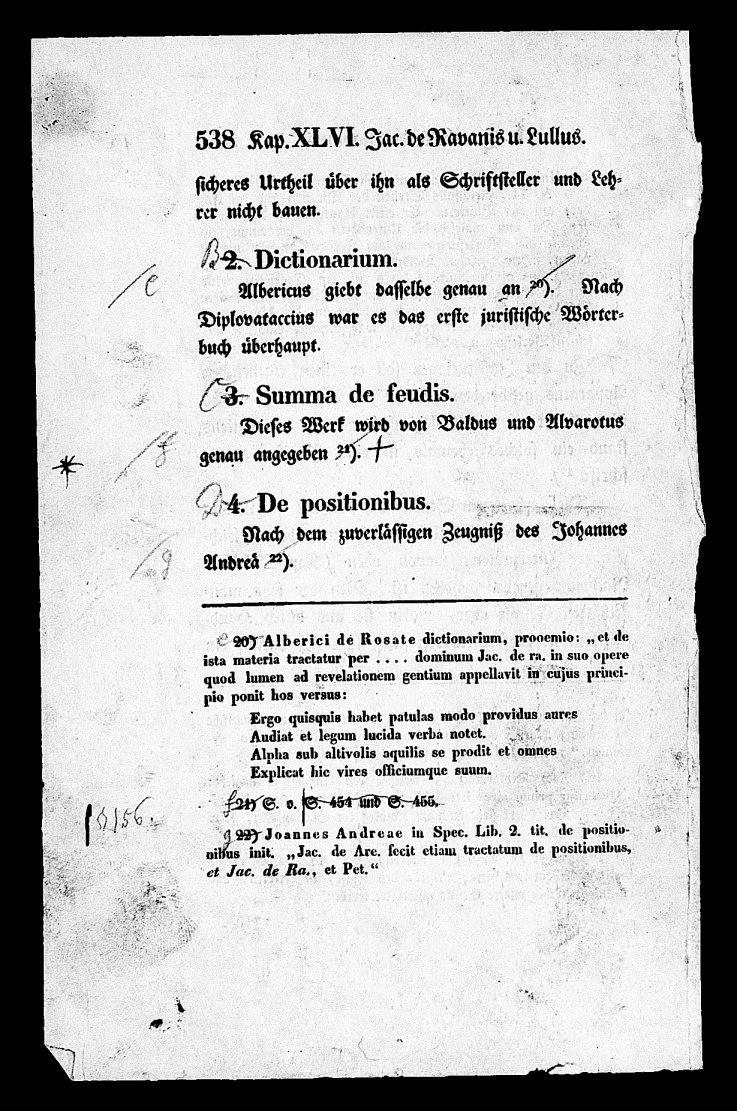 538 Kap. XLVI. Jac. de Ravanis u. Lullus.
sicheres Urtheil über ihn als Schriftsteller und Leh-
rer nicht bauen.
B 2. Dictionarium.
/e Albericus giebt dasselbe genau an 20). Nach
Diplovataccius war es das erste juristische Wörter-
buch überhaupt.
C 3. Summa de feudis.
Dieses Werk wird von Baldus und Alvarotus
* /f genau angegeben 21). +
D 4. De positionibus.
Nach dem zuverlässigen Zeugniß des Johannes
/g Andreä 22).
e 20) Alberici de Rosate dictionarium, prooemio: „et de
ista materia tractatur per . . . . dominum Jac. de ra. in suo opere
quod lumen ad revelationem gentium appellavit in cujus princi-
pio ponit hos versus:
Ergo quisquis habet patulas modo providus aures
Audiat et legum lucida verba notet.
Alpha sub altivolis aquilis se prodit et omnes
Explicat hic vires officiumque suum.
f 21) S. o. S. 454 und S. 455.
g 22) Joannes Andreae in Spec. Lib. 2. tit. de positio-
nibus init. „Jac. de Are. fecit etiam tractatum de positionibus,
et Jac. de Ra., et Pet.“